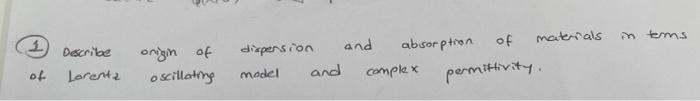 1 Describe origin of dispersion and absorption of materials in terms
of Lorentz oscillating model and complex permittivity.